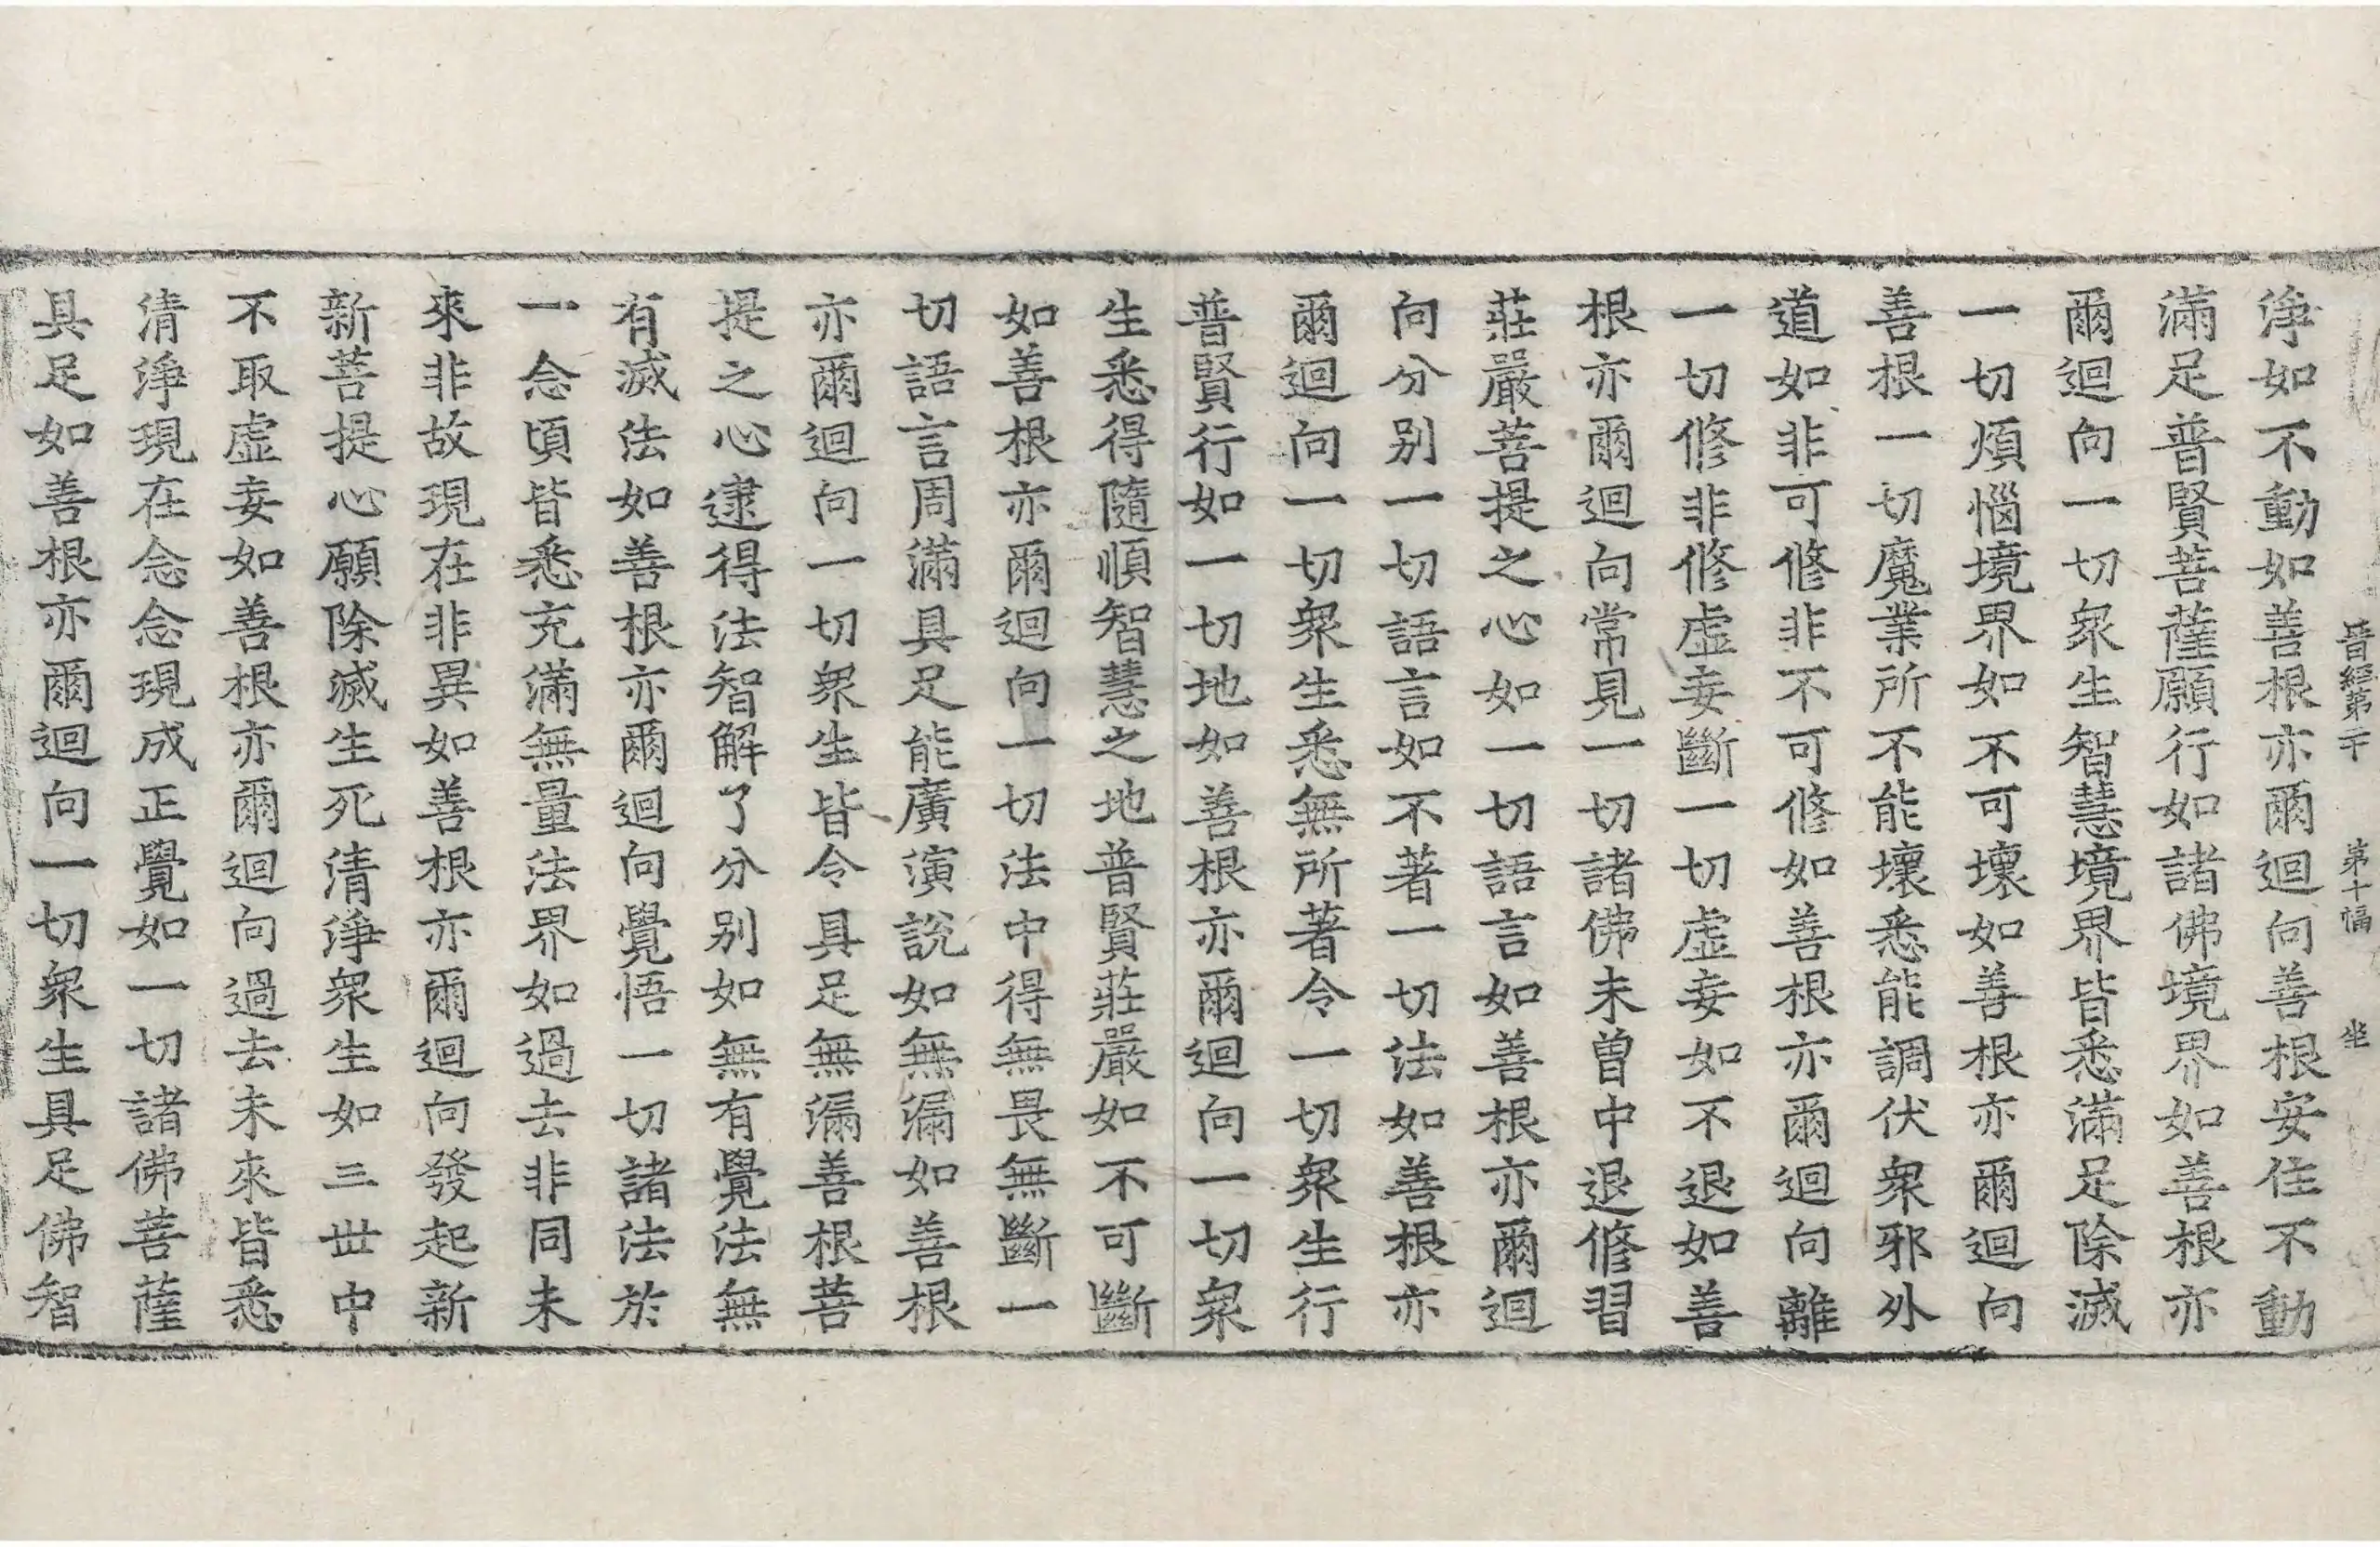 晉經第二十 第十幅 坐
淨如不動如善根亦爾迴向善根安住不動
滿足普賢菩薩願行如諸佛境界如善根亦
爾迴向一切衆生智慧境界皆悉滿足除滅
一切煩惱境界如不可壞如善根亦爾迴向
善根一切魔業所不能壞悉能調伏衆邪外
道如非可修非不可修如善根亦爾迴向離
一切修非修虛妄斷一切虛妄如不退如善
根亦爾迴向常見一切諸佛未曾中退修習
莊嚴菩提之心如一切語言如善根亦爾迴
向分别一切語言如不著一切法如善根亦
爾迴向一切衆生悉無所著令一切衆生行
普賢行如一切地如善根亦爾迴向一切衆
生悉得隨順智慧之地普賢莊嚴如不可斷
如善根亦爾迴向一切法中得無畏無斷一
切語言周滿具足能廣演說如無漏如善根
亦爾迴向一切衆生皆令具足無漏善根菩
提之心逮得法智解了分别如無有覺法無
有滅法如善根亦爾迴向覺悟一切諸法於
一念頃皆悉充滿無量法界如過去非同未
來非故現在非異如善根亦爾迴向發起新
新菩提心願除滅生死清淨衆生如三世中
不取虛妄如善根亦爾迴向過去未來皆悉
清淨現在念念現成正覺如一切諸佛菩薩
具足如善根亦爾迴向一切衆生具足佛智